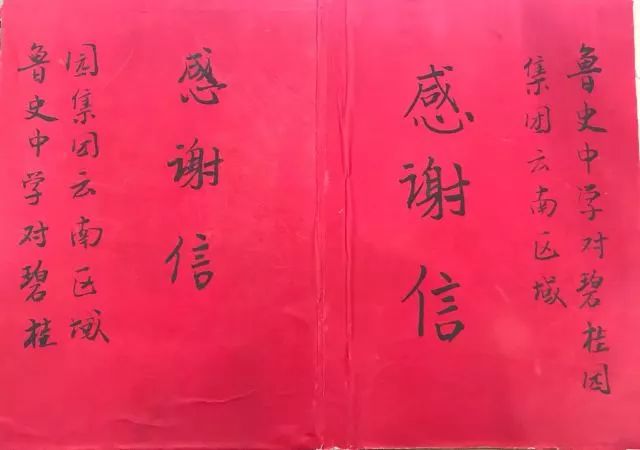 鲁史中学对碧桂园
集团云南区域
感谢信
鲁史中学对碧桂
园集团云南区域
感谢信